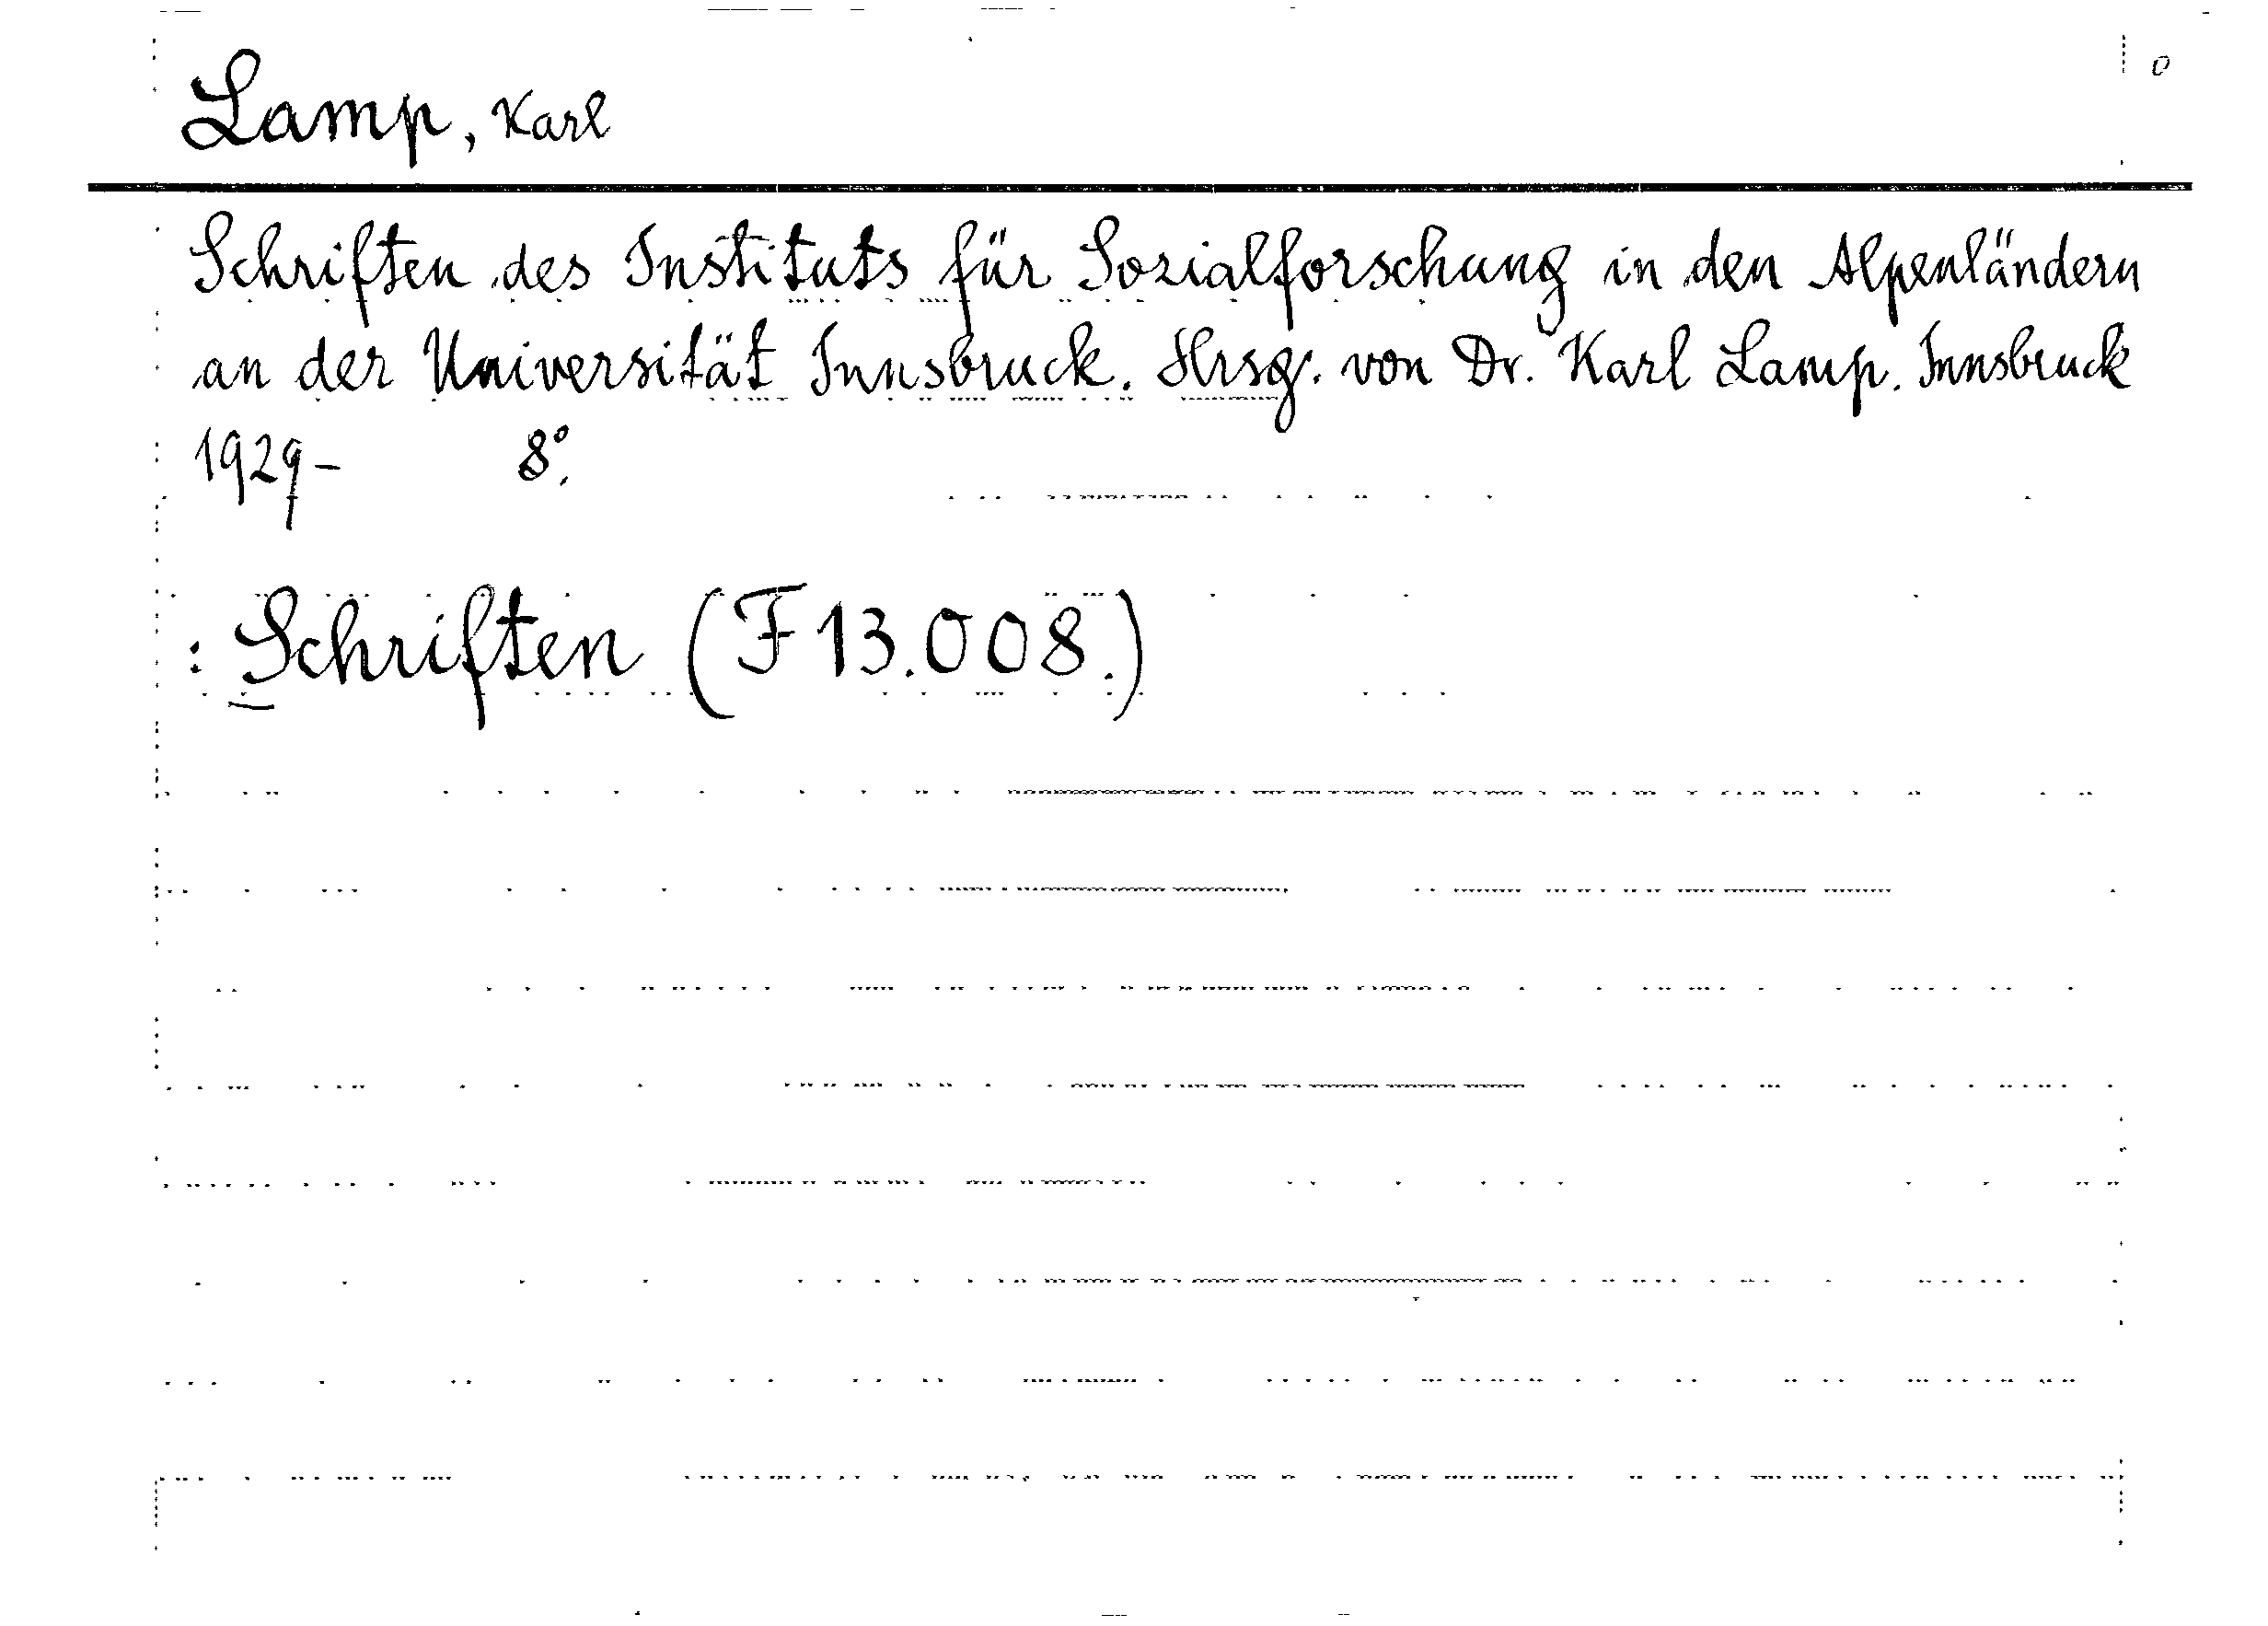 0
Lamp, Karl
Schriften des Instituts für Sozialforschung in den Alpenländern
an der Universität Innsbruck. Hrsg. von Dr. Karl Lamp. Innsbruck
1929- 8°.
: Schriften (F 13.008.)